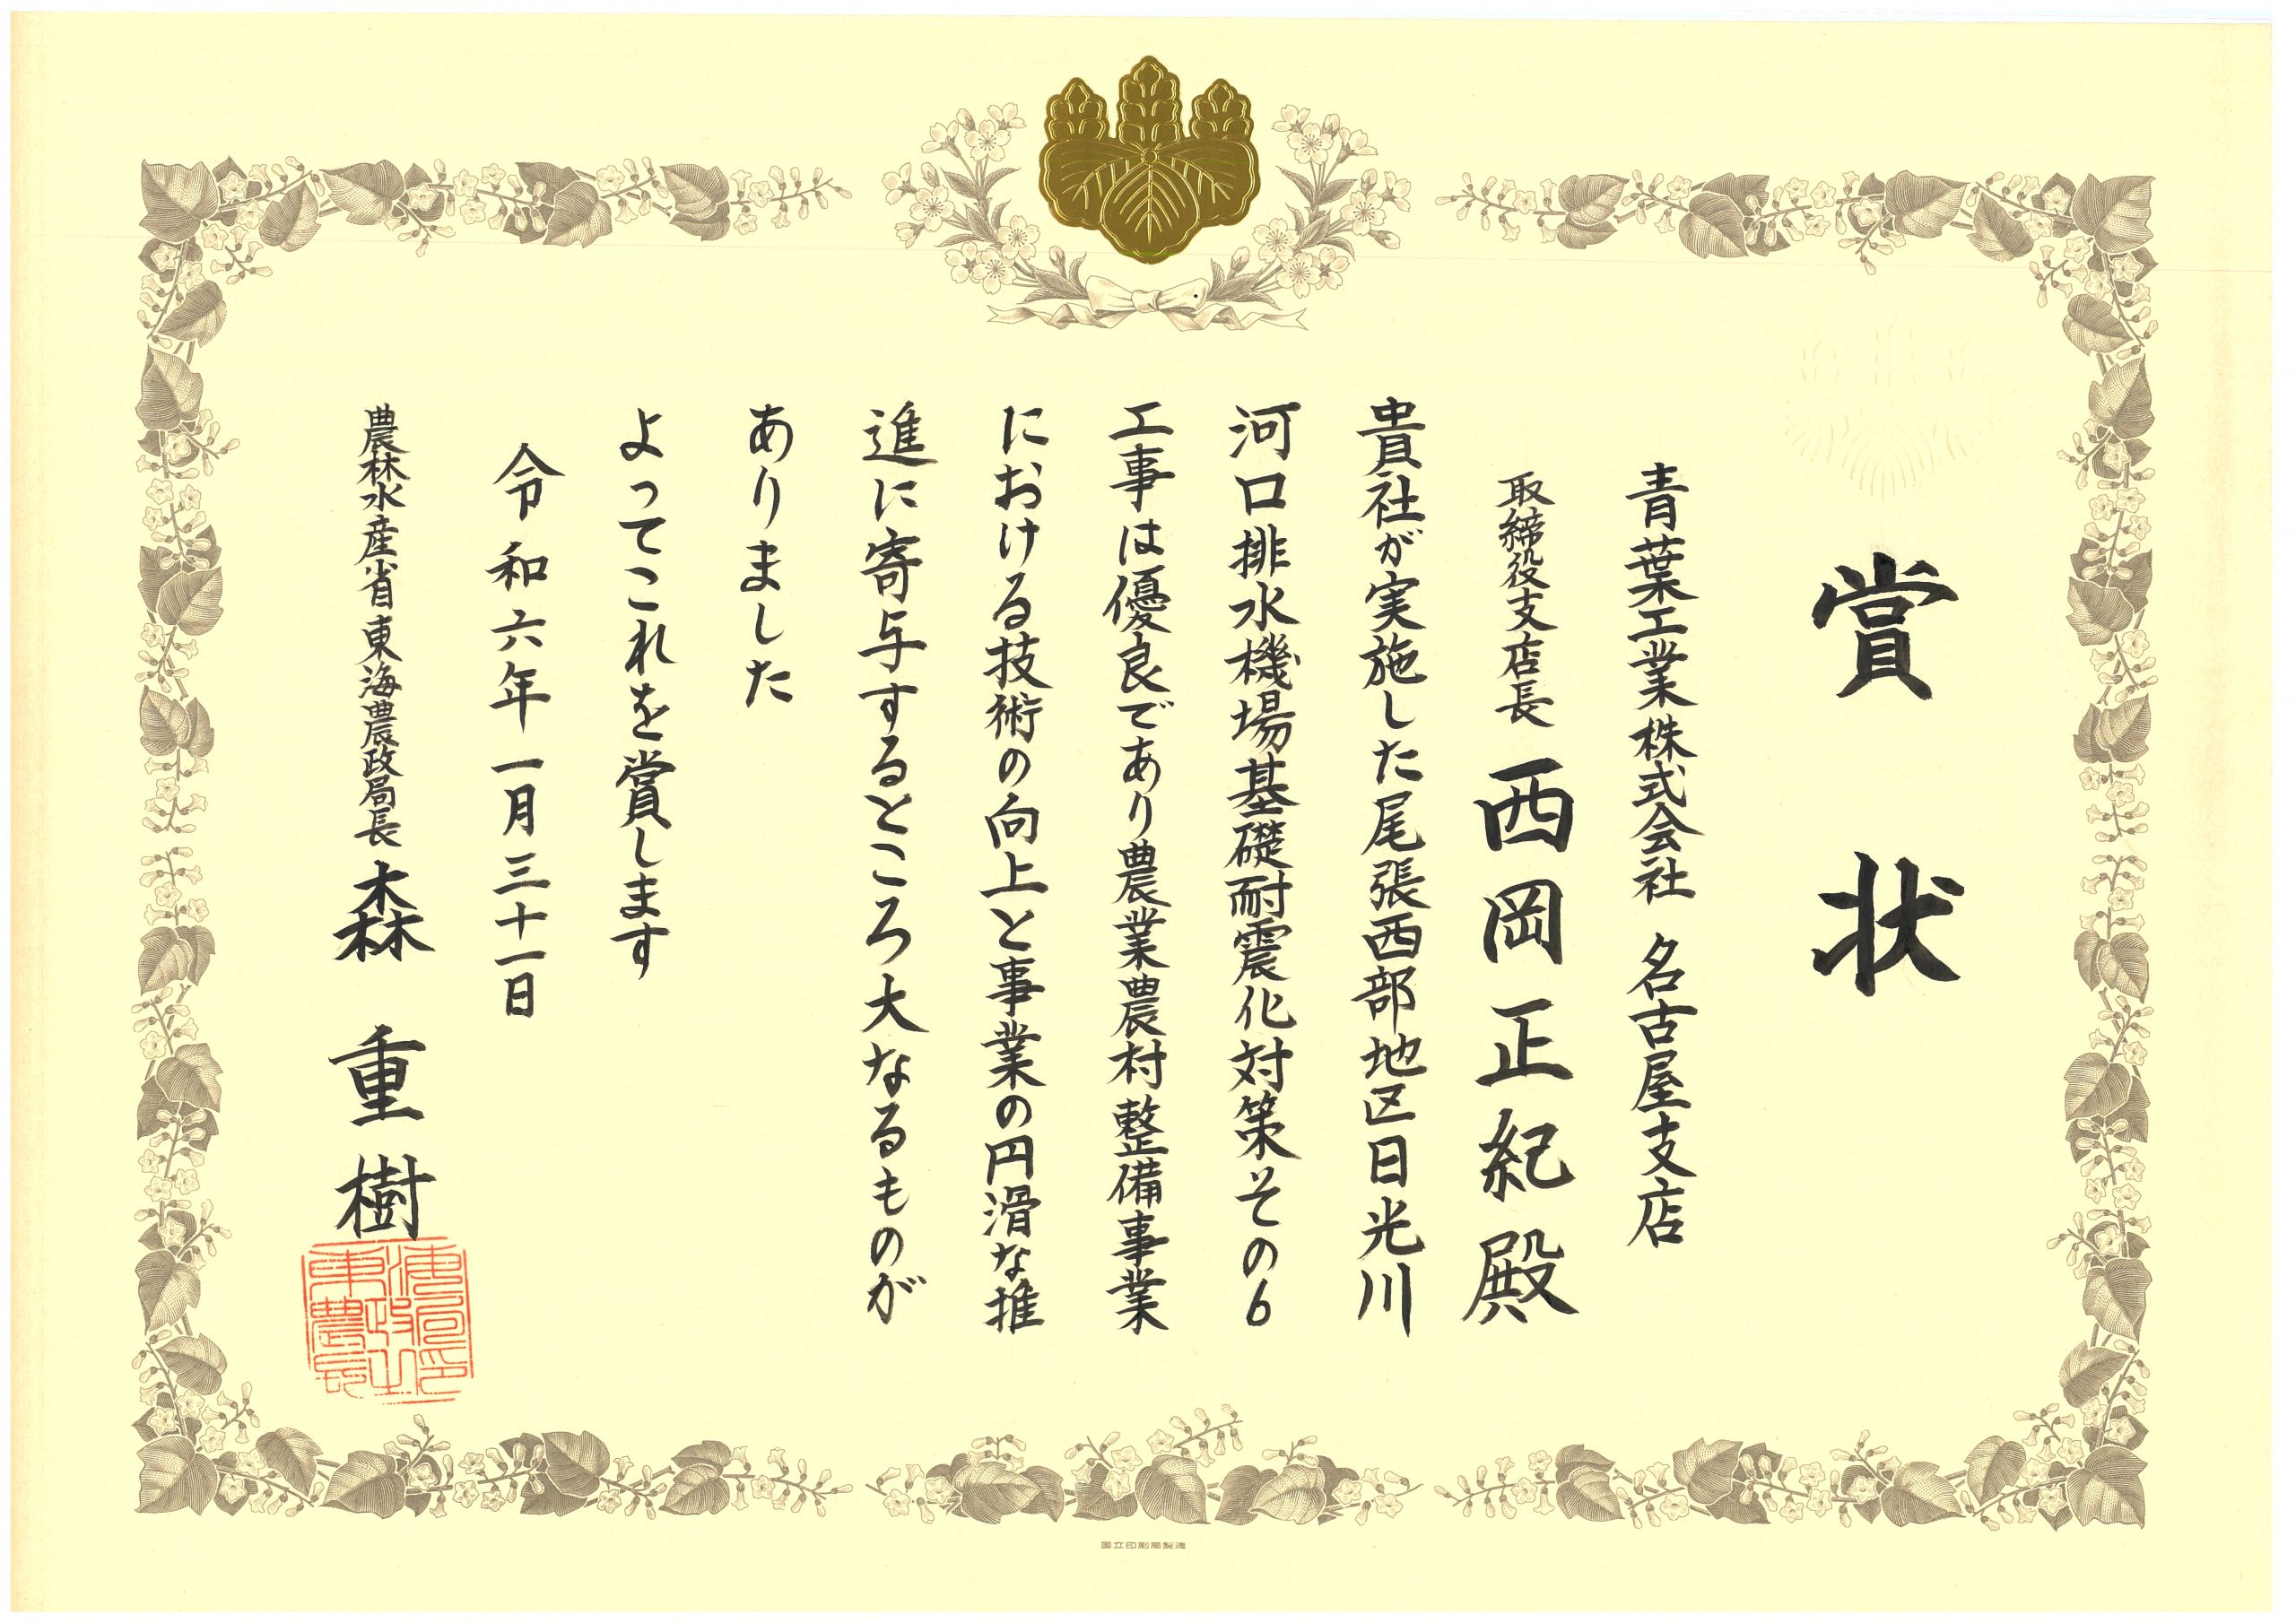 賞状
青葉工業株式会社 名古屋支店
取締役支店長 西岡正紀殿
貴社が実施した尾張西部地区日光川
河口排水機場基礎耐震化対策その6
工事は優良であり農業農村整備事業
における技術の向上と事業の円滑な推
進に寄与するところ大なるものが
ありました
よってこれを賞します
令和六年一月三十一日
農林水産省東海農政局長 森 重樹
国立印刷局製造